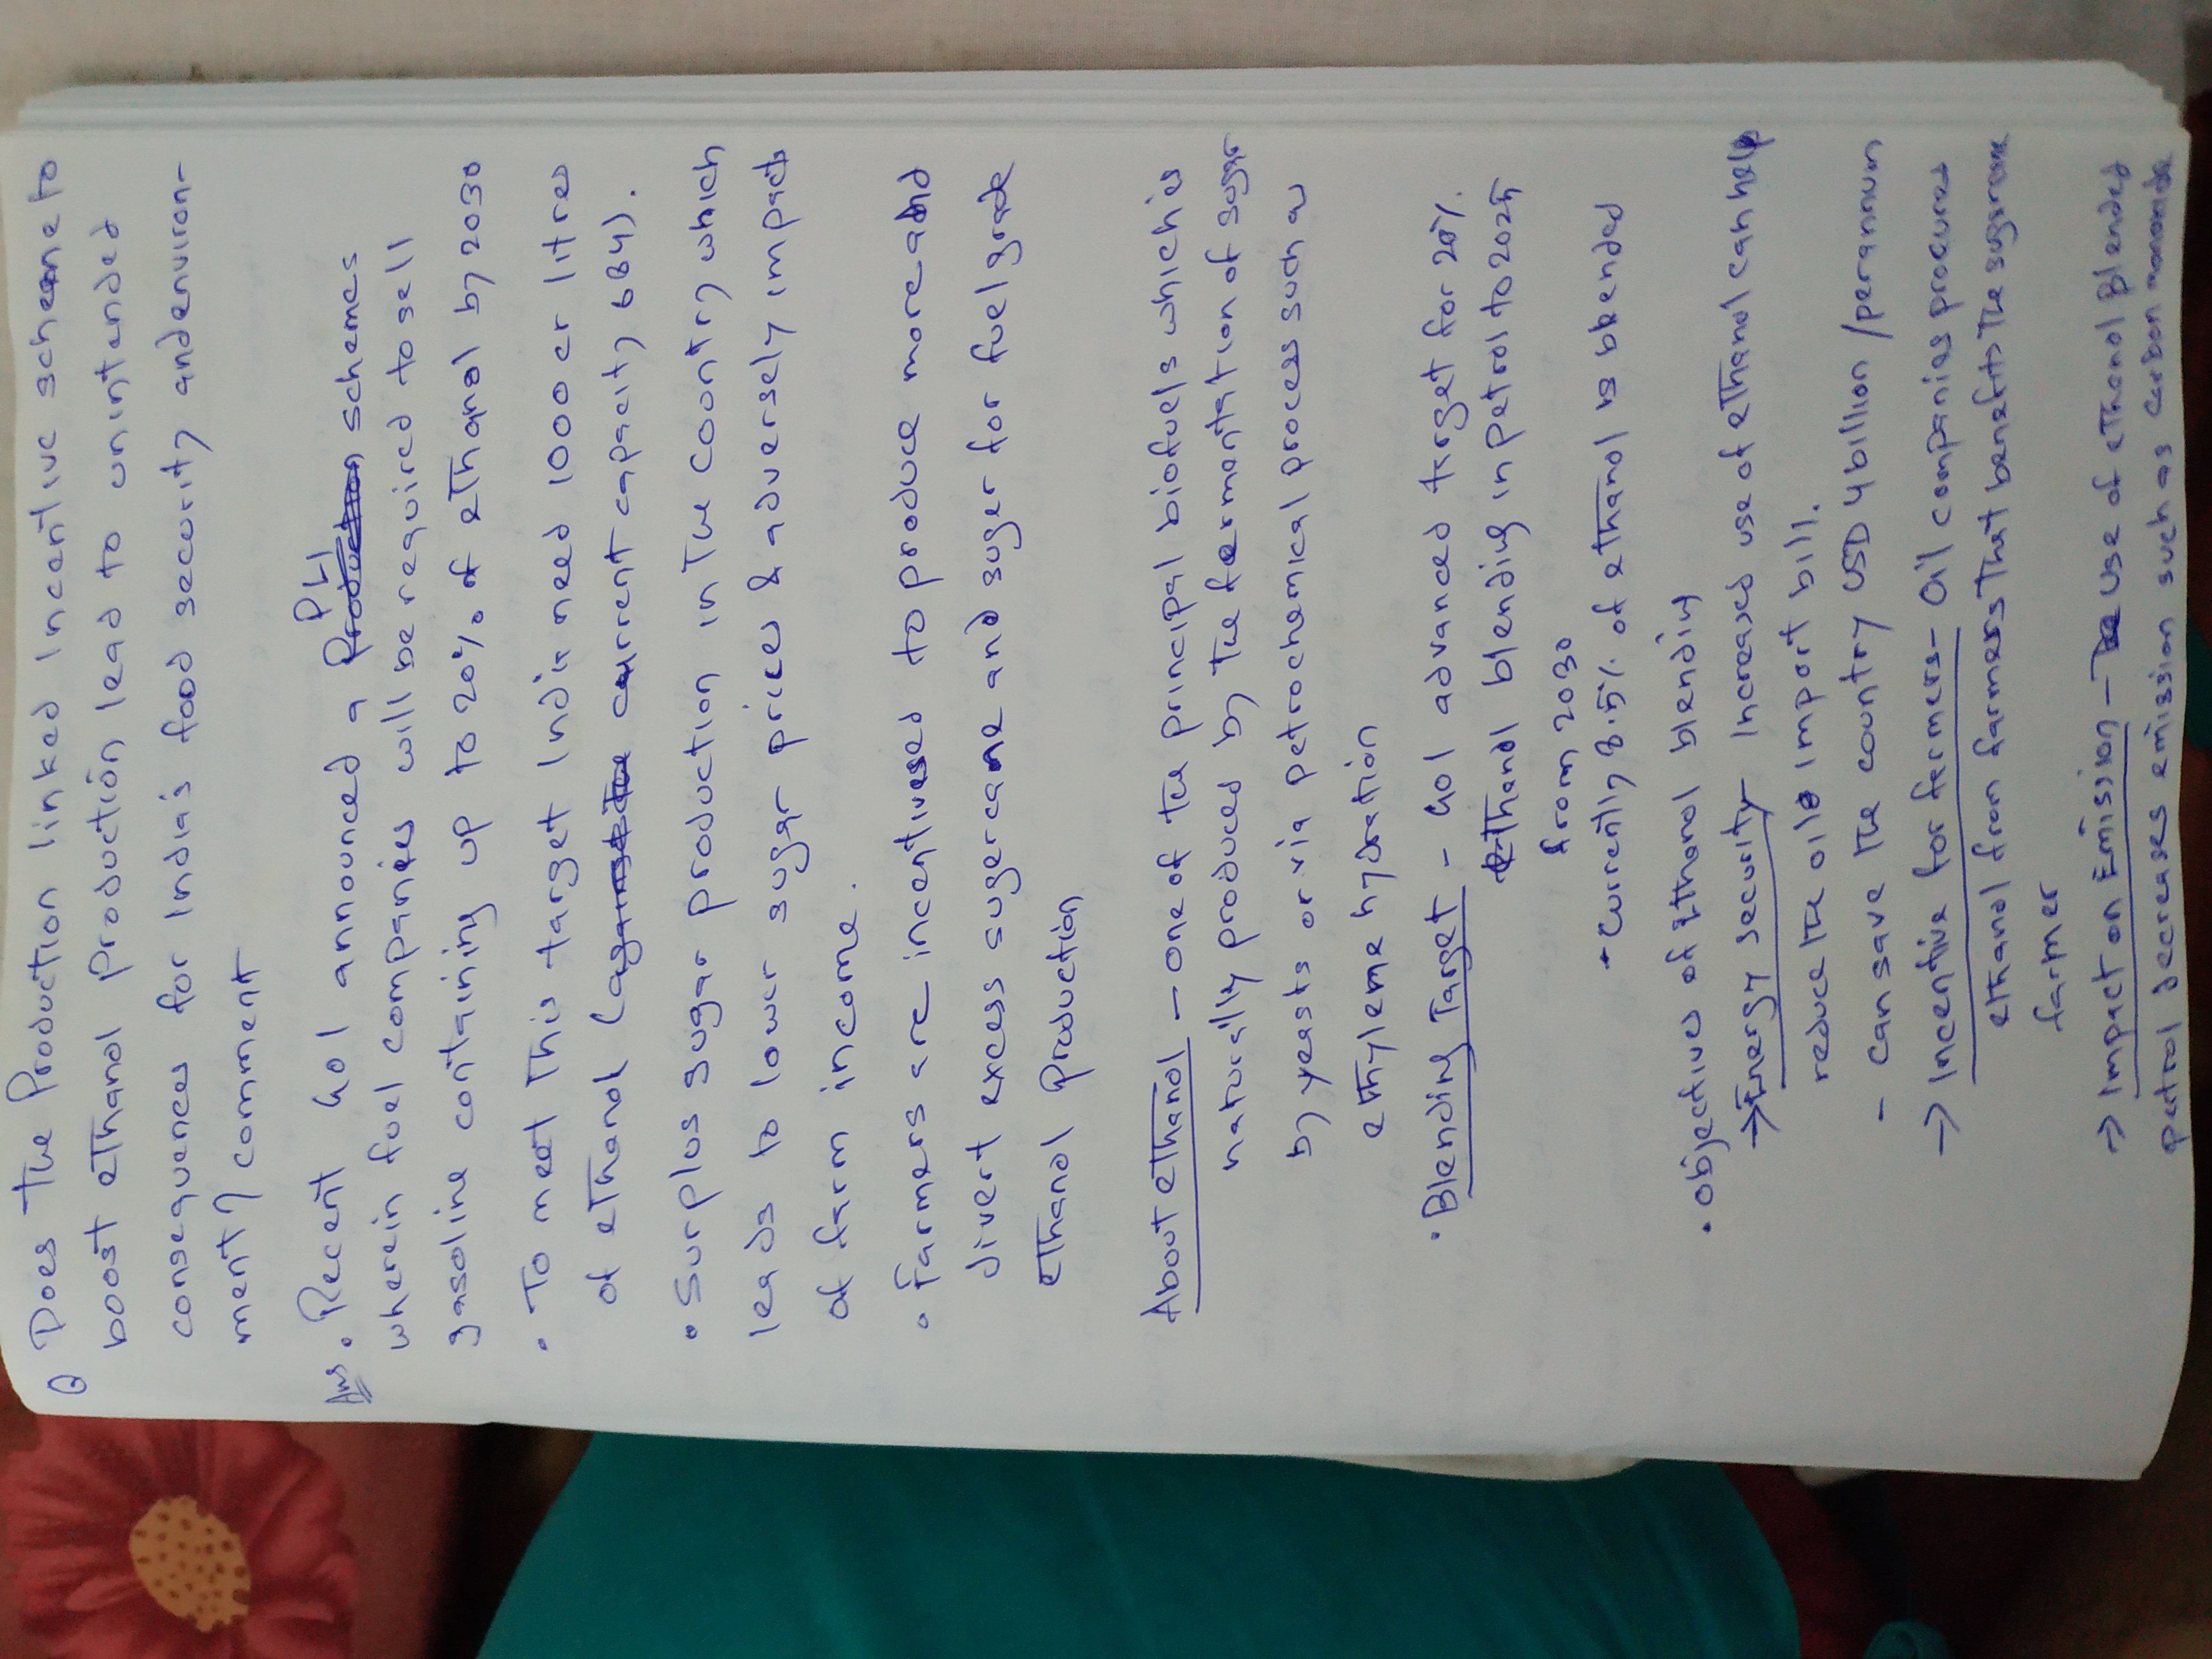 Q Does the Production linked Incentive scheme to
boost ethanol production lead to unintended
consequences for India's food security and environ-
ment? comment
Ans. • Recent GoI announced a PLI schemes
wherein fuel companies will be required to sell
gasoline containing up to 20% of ethanol by 2030
• To meet this target India need 1000 cr litres
of ethanol (current capacity 684).
• Surplus sugar production in the country which
leads to lower sugar prices & adversely impact
of farm income.
• Farmers are incentivised to produce more and
divert excess sugercane and suger for fuel grade
ethanol production
About ethanol - one of the principal biofuels which is
naturally produced by the fermentation of sugar
by yeasts or via petrochemical process such as
ethylene hydration
• Blending Target - GoI advanced target for 20%
Ethanol blending in petrol to 2025
from 2030
- currently 8.5% of ethanol is blended
• objectives of Ethanol blending
→ Energy security - Increased use of ethanol can help
reduce the oil import bill.
- can save the country USD 4 billion / per annum
→ Incentive for farmers - Oil companies procures
ethanol from farmers that benefits the sugarcane
farmer
→ Impact on Emission - use of ethanol Blended
petrol decreases emission such as carbon monoxide